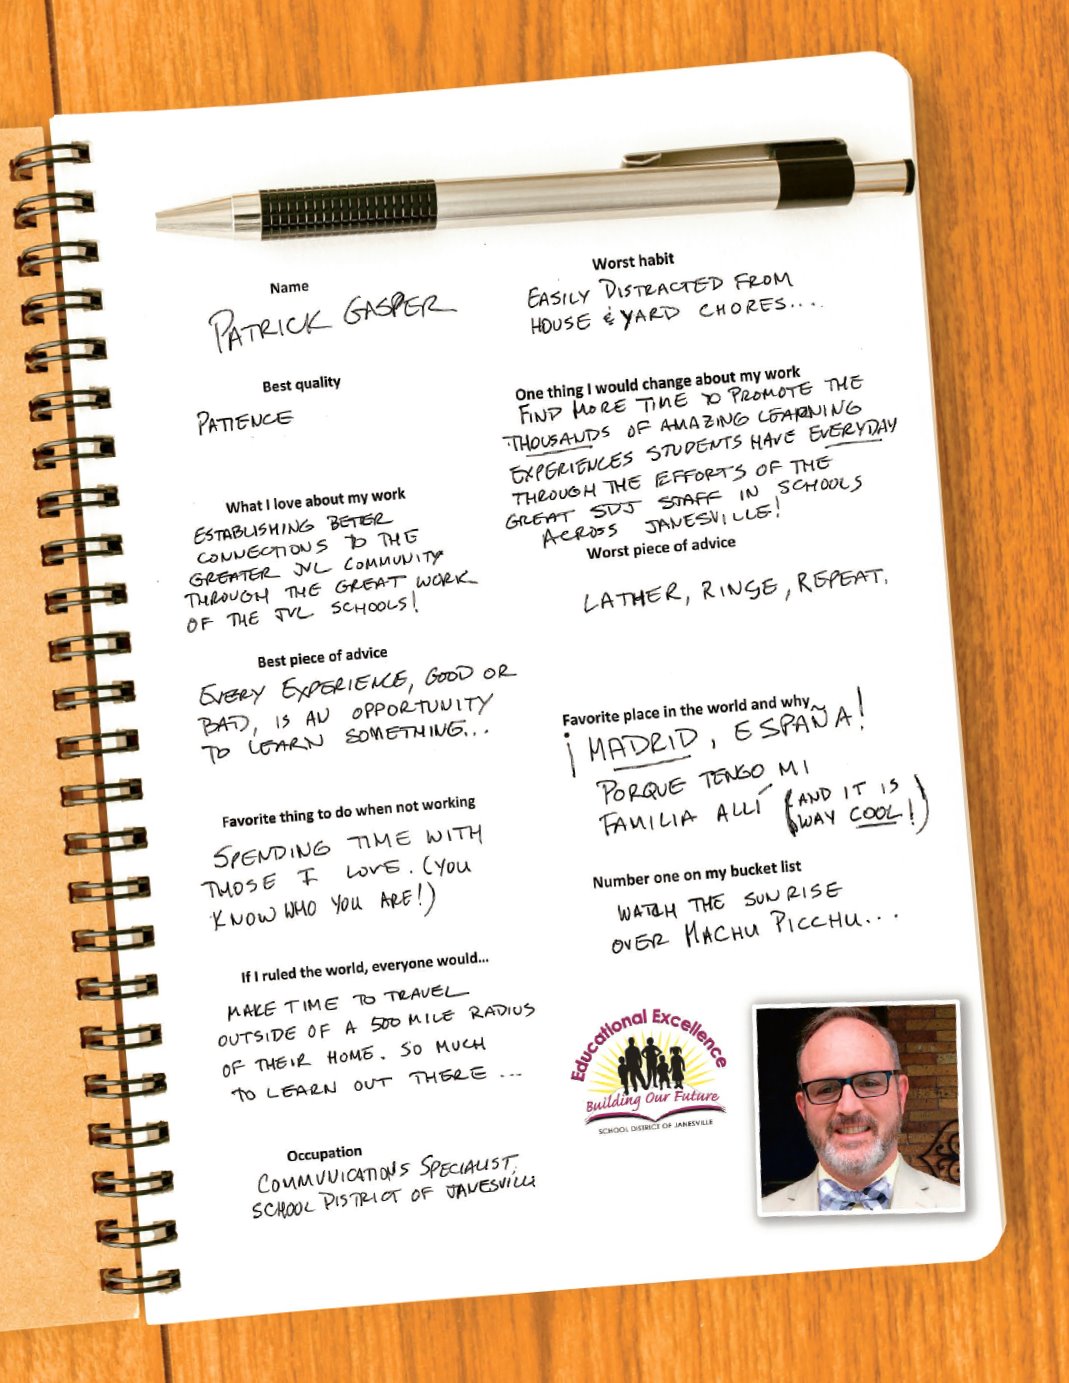 Name
PATRICK GASPER
Best quality
PATIENCE
What I love about my work
ESTABLISHING BETER
CONNECTIONS TO THE
GREATER JVL COMMUNITY
THROUGH THE GREAT WORK
OF THE JVL SCHOOLS!
Best piece of advice
EVERY EXPERIENCE, GOOD OR
BAD, IS AN OPPORTUNITY
TO LEARN SOMETHING...
Favorite thing to do when not working
SPENDING TIME WITH
THOSE I LOVE. (YOU
KNOW WHO YOU ARE!)
If I ruled the world, everyone would...
MAKE TIME TO TRAVEL
OUTSIDE OF A 500 MILE RADIUS
OF THEIR HOME. SO MUCH
TO LEARN OUT THERE ...
Occupation
COMMUNICATIONS SPECIALIST,
SCHOOL DISTRICT OF JANESVILLE
Worst habit
EASILY DISTRACTED FROM
HOUSE & YARD CHORES....
One thing I would change about my work
FIND MORE TIME TO PROMOTE THE
THOUSANDS OF AMAZING LEARNING
EXPERIENCES STUDENTS HAVE EVERYDAY
THROUGH THE EFFORTS OF THE
GREAT SDJ STAFF IN SCHOOLS
ACROSS JANESVILLE!
Worst piece of advice
LATHER, RINSE, REPEAT.
Favorite place in the world and why
¡MADRID, ESPAÑA!
PORQUE TENGO MI
FAMILIA ALLÍ (AND IT IS
WAY COOL!)
Number one on my bucket list
WATCH THE SUNRISE
OVER MACHU PICCHU...
Educational Excellence
Building Our Future
SCHOOL DISTRICT OF JANESVILLE